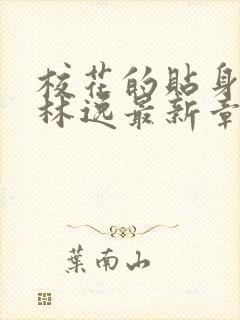 校花的貼身
林逸最新章
葉南山